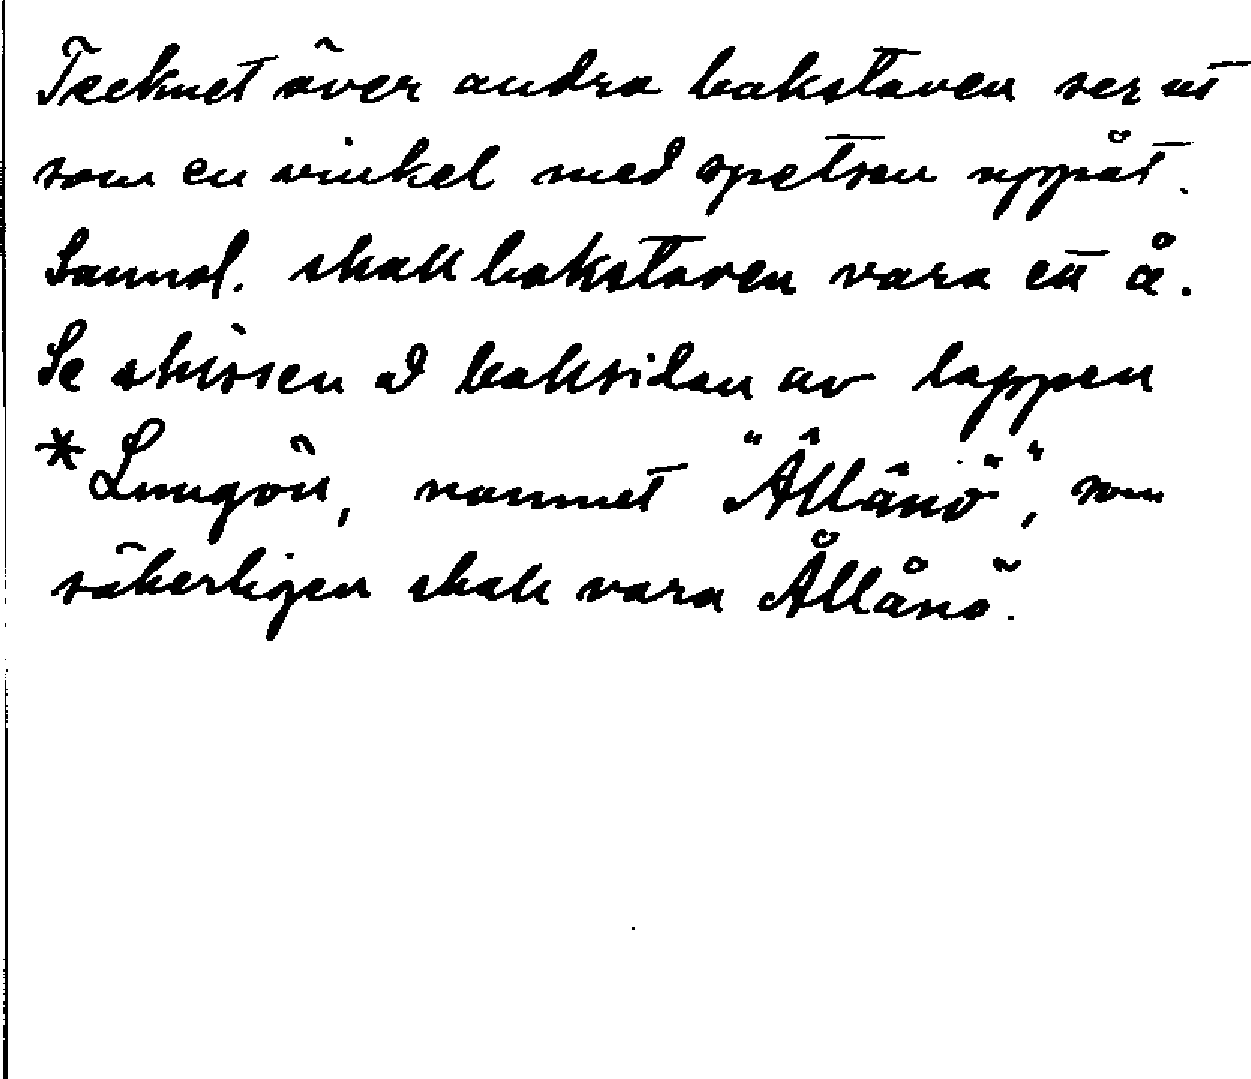 Tecknet över andra bokstaven ser ut
som en vinkel med spetsen uppåt.
Sannol. skall bokstaven vara ett å.
Se skissen å baksidan av lappen
* Lungön, namnet "Âllânö", som
säkerligen skall vara Ållånö.